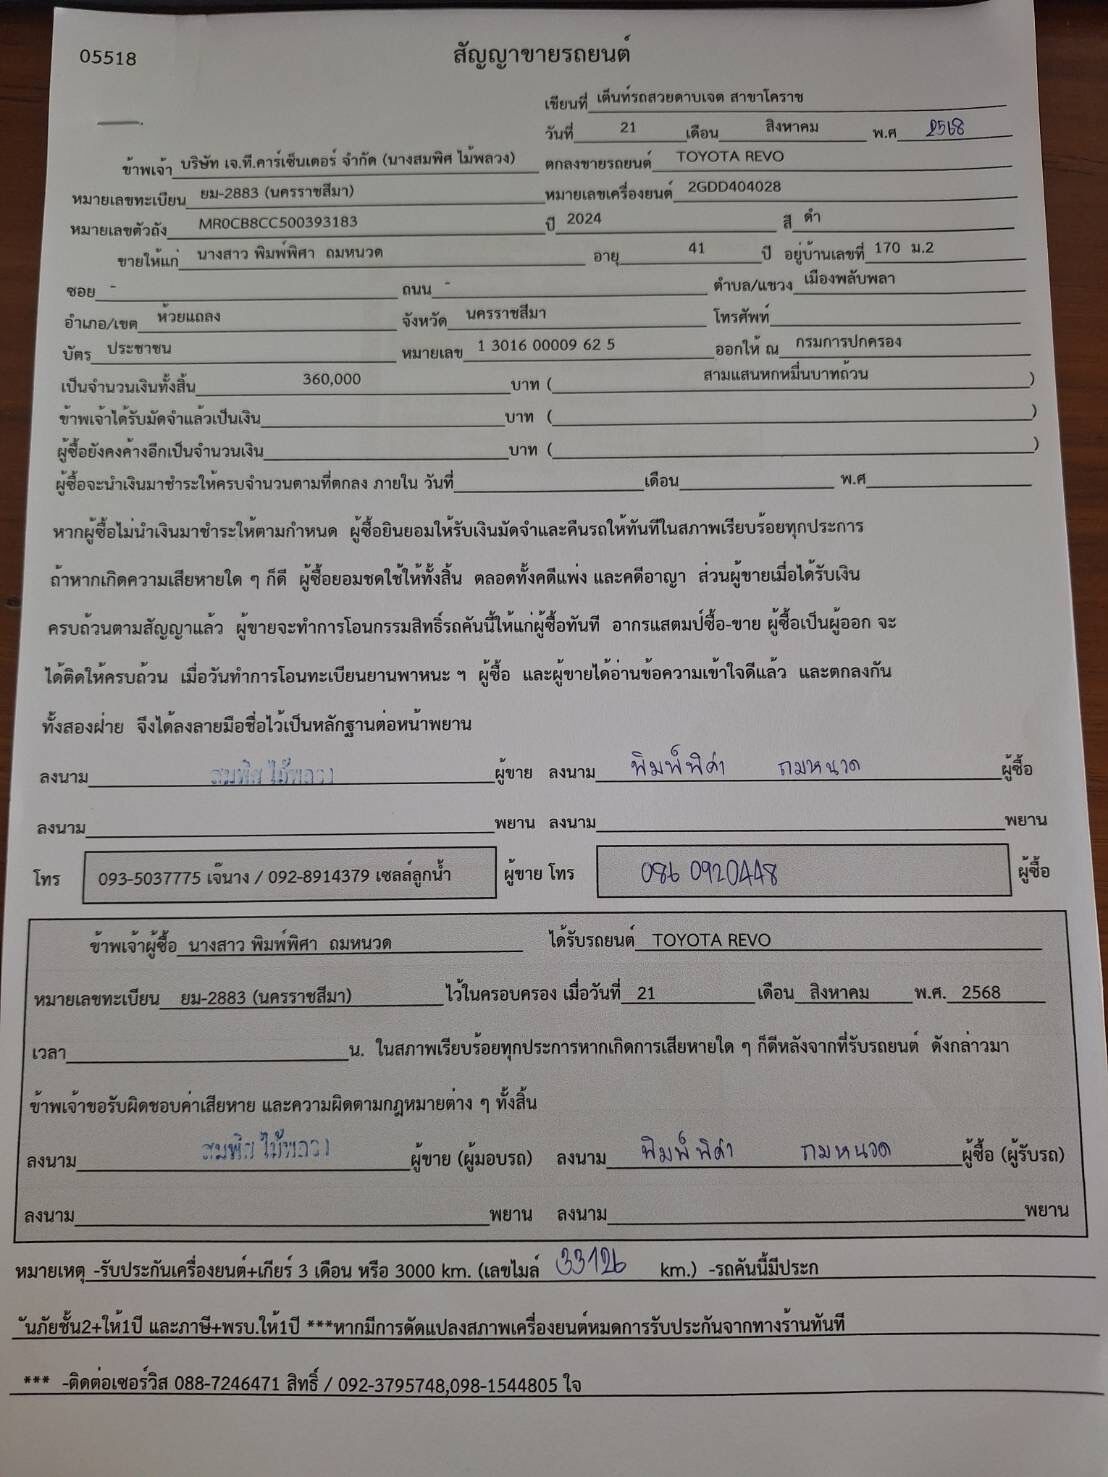 05518
สัญญาขายรถยนต์
เขียนที่ เต็นท์รถสวยดาบเจต สาขาโคราช
วันที่ 21 เดือน สิงหาคม พ.ศ 2568
ข้าพเจ้า บริษัท เจ.ที.คาร์เซ็นเตอร์ จำกัด (นางสมพิศ ไม้พลวง) ตกลงขายรถยนต์ TOYOTA REVO
หมายเลขทะเบียน ยม-2883 (นครราชสีมา) หมายเลขเครื่องยนต์ 2GDD404028
หมายเลขตัวถัง MR0CB8CC500393183 ปี 2024 สี ดำ
ขายให้แก่ นางสาว พิมพ์พิศา ถมหนวด อายุ 41 ปี อยู่บ้านเลขที่ 170 ม.2
ซอย - ถนน - ตำบล/แขวง เมืองพลับพลา
อำเภอ/เขต ห้วยแถลง จังหวัด นครราชสีมา โทรศัพท์
บัตร ประชาชน หมายเลข 1 3016 00009 62 5 ออกให้ ณ กรมการปกครอง
เป็นจำนวนเงินทั้งสิ้น 360,000 บาท ( สามแสนหกหมื่นบาทถ้วน )
ข้าพเจ้าได้รับมัดจำแล้วเป็นเงิน บาท ( )
ผู้ซื้อยังคงค้างอีกเป็นจำนวนเงิน บาท ( )
ผู้ซื้อจะนำเงินมาชำระให้ครบจำนวนตามที่ตกลง ภายใน วันที่ เดือน พ.ศ
หากผู้ซื้อไม่นำเงินมาชำระให้ตามกำหนด ผู้ซื้อยินยอมให้รับเงินมัดจำและคืนรถให้ทันทีในสภาพเรียบร้อยทุกประการ
ถ้าหากเกิดความเสียหายใด ๆ ก็ดี ผู้ซื้อยอมชดใช้ให้ทั้งสิ้น ตลอดทั้งคดีแพ่ง และคดีอาญา ส่วนผู้ขายเมื่อได้รับเงิน
ครบถ้วนตามสัญญาแล้ว ผู้ขายจะทำการโอนกรรมสิทธิ์รถคันนี้ให้แก่ผู้ซื้อทันที อากรแสตมป์ซื้อ-ขาย ผู้ซื้อเป็นผู้ออก จะ
ได้ติดให้ครบถ้วน เมื่อวันทำการโอนทะเบียนยานพาหนะ ฯ ผู้ซื้อ และผู้ขายได้อ่านข้อความเข้าใจดีแล้ว และตกลงกัน
ทั้งสองฝ่าย จึงได้ลงลายมือชื่อไว้เป็นหลักฐานต่อหน้าพยาน
ลงนาม สมพิศ ไม้พลวง ผู้ขาย ลงนาม พิมพ์พิศา ถมหนวด ผู้ซื้อ
ลงนาม พยาน ลงนาม พยาน
โทร 093-5037775 เจ๊นาง / 092-8914379 เซลล์ลูกน้ำ ผู้ขาย โทร 086 0920448 ผู้ซื้อ
ข้าพเจ้าผู้ซื้อ นางสาว พิมพ์พิศา ถมหนวด ได้รับรถยนต์ TOYOTA REVO
หมายเลขทะเบียน ยม-2883 (นครราชสีมา) ไว้ในครอบครอง เมื่อวันที่ 21 เดือน สิงหาคม พ.ศ. 2568
เวลา น. ในสภาพเรียบร้อยทุกประการหากเกิดการเสียหายใด ๆ ก็ดีหลังจากที่รับรถยนต์ ดังกล่าวมา
ข้าพเจ้าขอรับผิดชอบค่าเสียหาย และความผิดตามกฎหมายต่าง ๆ ทั้งสิ้น
ลงนาม สมพิศ ไม้พลวง ผู้ขาย (ผู้มอบรถ) ลงนาม พิมพ์พิศา ถมหนวด ผู้ซื้อ (ผู้รับรถ)
ลงนาม พยาน ลงนาม พยาน
หมายเหตุ -รับประกันเครื่องยนต์+เกียร์ 3 เดือน หรือ 3000 km. (เลขไมล์ 33126 km.) -รถคันนี้มีประก
ันภัยชั้น2+ให้1ปี และภาษี+พรบ.ให้1ปี ***หากมีการดัดแปลงสภาพเครื่องยนต์หมดการรับประกันจากทางร้านทันที
*** -ติดต่อเซอร์วิส 088-7246471 สิทธิ์ / 092-3795748,098-1544805 ใจ